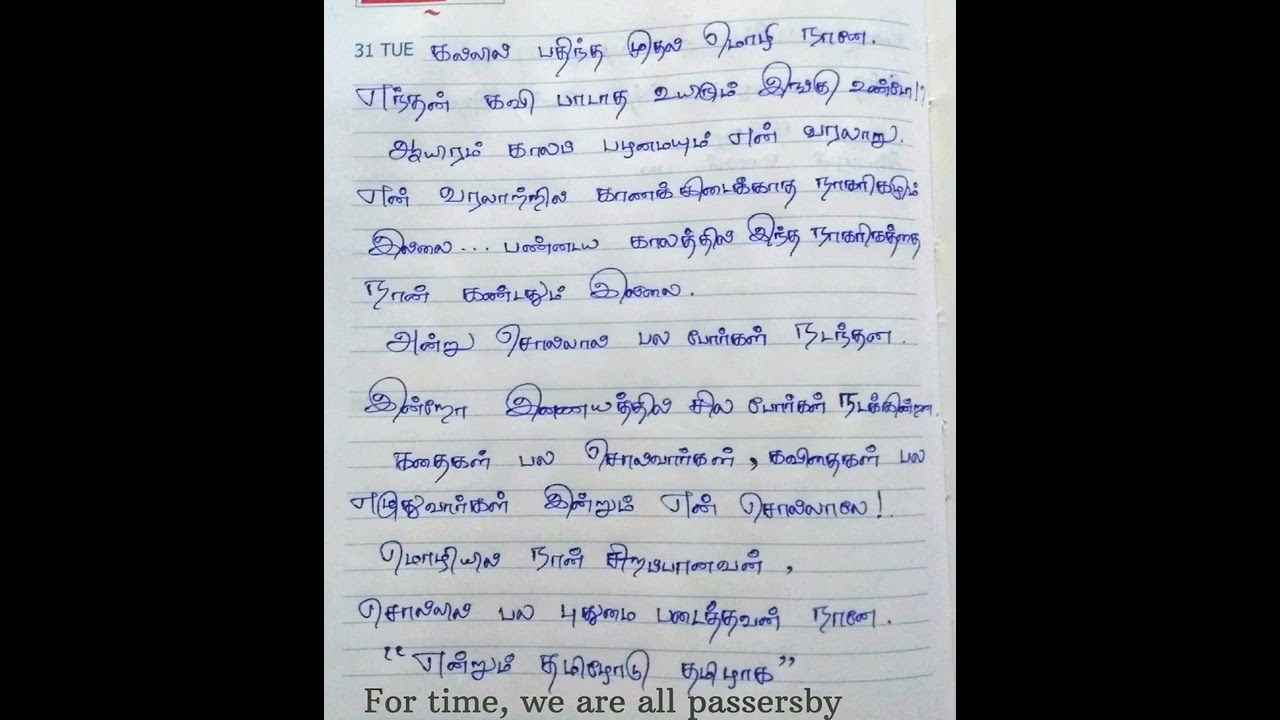 31 TUE கல்லில் பதிந்த முதல் மொழி நானே.
எந்தன் கவி பாடாத உயிரும் இங்கு உண்டோ!?
ஆயிரம் காலப் பழமையும் என் வரலாறு.
என் வரலாற்றில் காணக் கிடைக்காத நாகரிகமும்
இல்லை... பண்டைய காலத்தில் இந்த நாகரிகத்தை
நான் கண்டதும் இல்லை.
அன்று சொல்லால் பல போர்கள் நடந்தன.
இன்றோ இணையத்தில் சில போர்கள் நடக்கின்றன.
கதைகள் பல சொல்வார்கள், கவிதைகள் பல
எழுதுவார்கள் இன்றும் என் சொல்லாலே!
மொழியில் நான் சிறப்பானவன்,
சொல்லில் பல புதுமை படைத்தவன் நானே.
"என்றும் தமிழோடு தமிழாக"
For time, we are all passersby